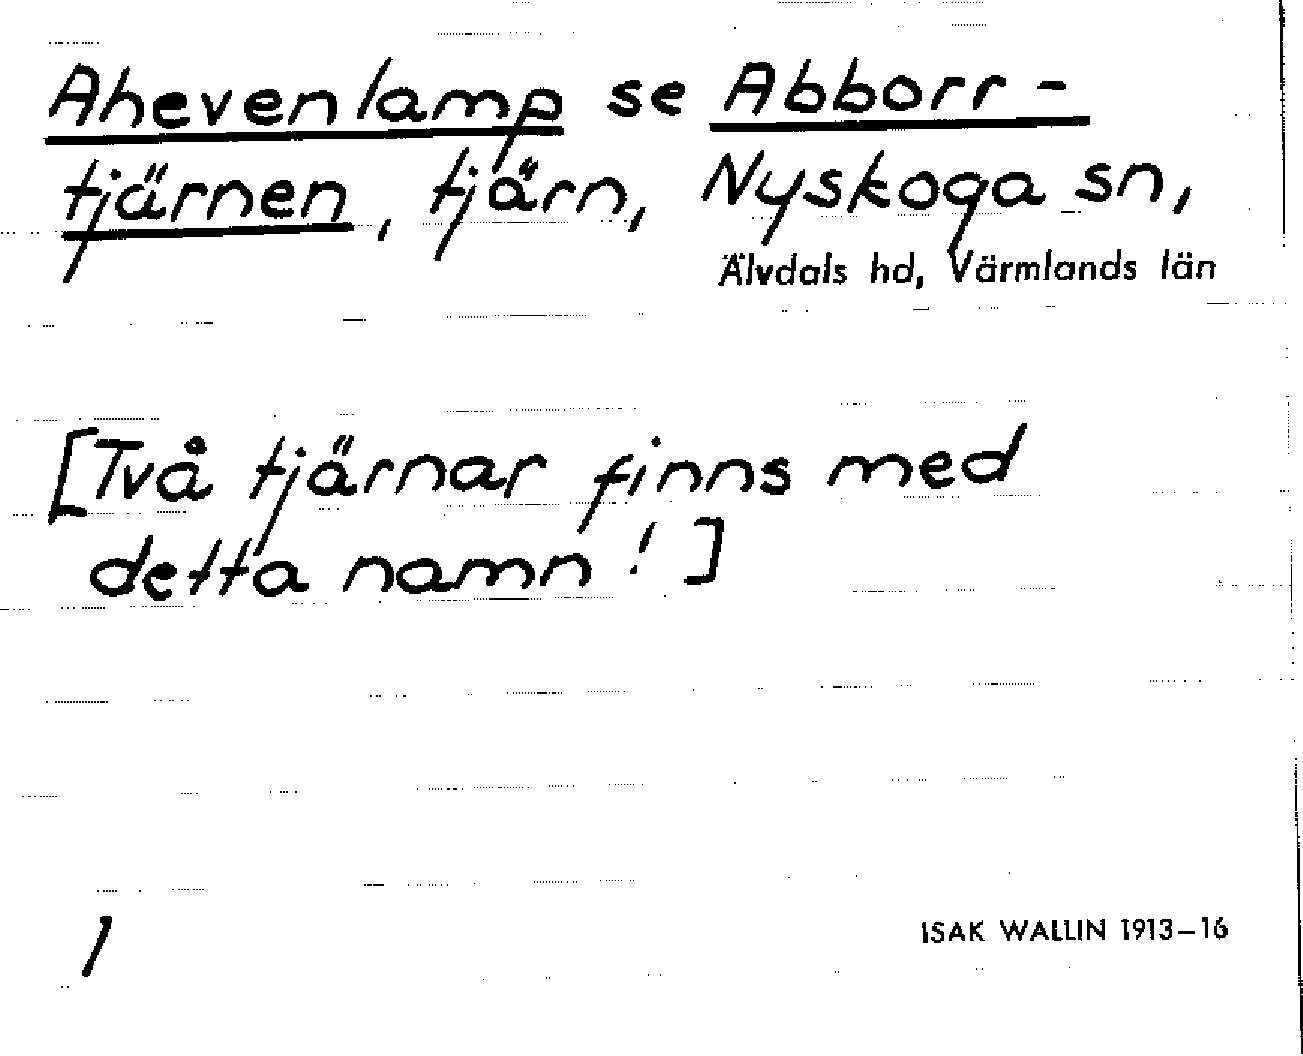 Ahevenlamp se Abborr-
tjärnen, tjärn, Nyskoga sn,
Älvdals hd, Värmlands län
[Två tjärnar finns med
detta namn!]
1
ISAK WALLIN 1913–16